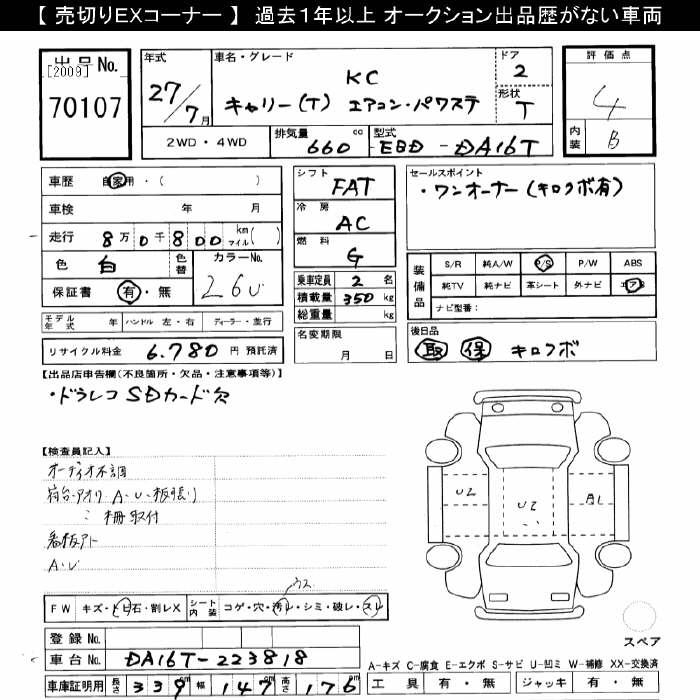 【 売切りEXコーナー 】 過去１年以上 オークション出品歴がない車両
出品 No.
[2009]
70107
年式
27/7月
車名・グレード
KC
キャリー(T) エアコン・パワステ
ドア
2
形状
T
評価点
4
内装
B
2WD・4WD
排気量 660 cc
型式 -EBD - DA16T
車歴 自家用・( )
車検 年 月
走行 8万0千800 km マイル( )
色 白 色替
カラーNo.
26U
保証書 有・無
モデル年式 年 ハンドル 左・右 ディーラー・並行
リサイクル料金 6,780 円 預託済
シフト
FAT
冷房
AC
燃料
G
乗車定員 2 名
積載量 350 kg
総重量 kg
名変期限
月 日
セールスポイント
・ワンオーナー(キロクボ有)
装備品
S/R 純A/W P/S P/W ABS
純TV 純ナビ 革シート 外ナビ エアB
ナビ型番:
後日品
取 保 キロクボ
【出品店申告欄(不良箇所・欠品・注意事項等)】
・ドラレコ SDカード欠
【検査員記入】
オーディオ不調
荷台・アオリ A・U・板張り
: 柵取付
看板アト
A・U
U2
U2
A1
FW キズ・トビ石・割レX シート内装 コゲ・穴・汚レ・シミ・破レ・スレ
ウス
登録 No.
車台 No. DA16T-223818
車庫証明用 長さ 339 cm 幅 147 cm 高さ 176 cm
スペア
A-キズ C-腐食 E-エクボ S-サビ U-凹ミ W-補修 XX-交換済
工具 有・無 ジャッキ 有・無